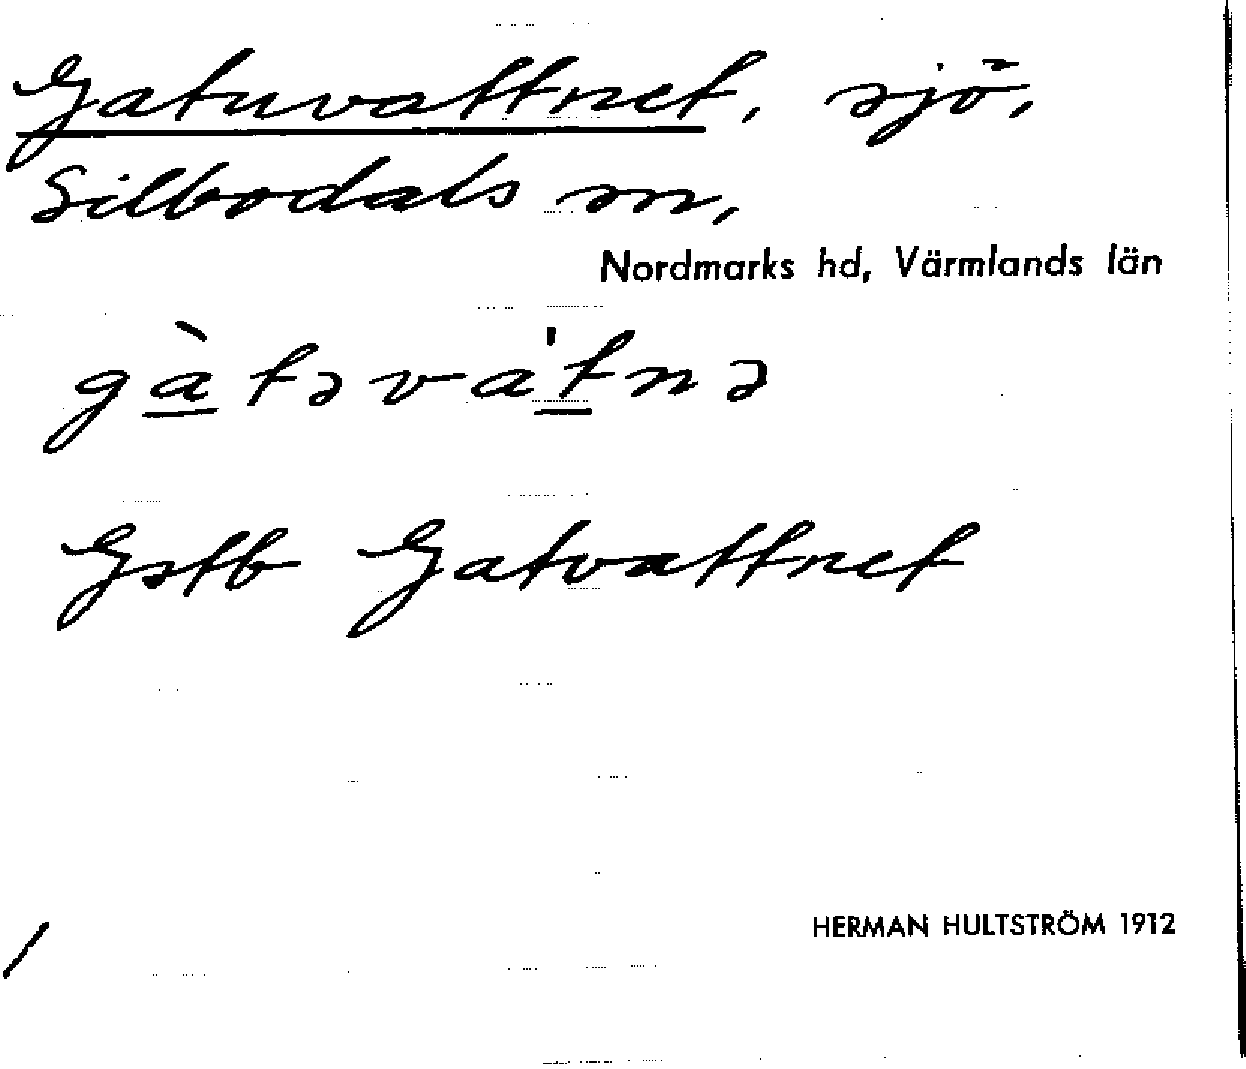 Gatuvattnet, sjö,
Silbodals sn,
Nordmarks hd, Värmlands län
gàtəva'tnə
Gstb Gatvattnet
/
HERMAN HULTSTRÖM 1912